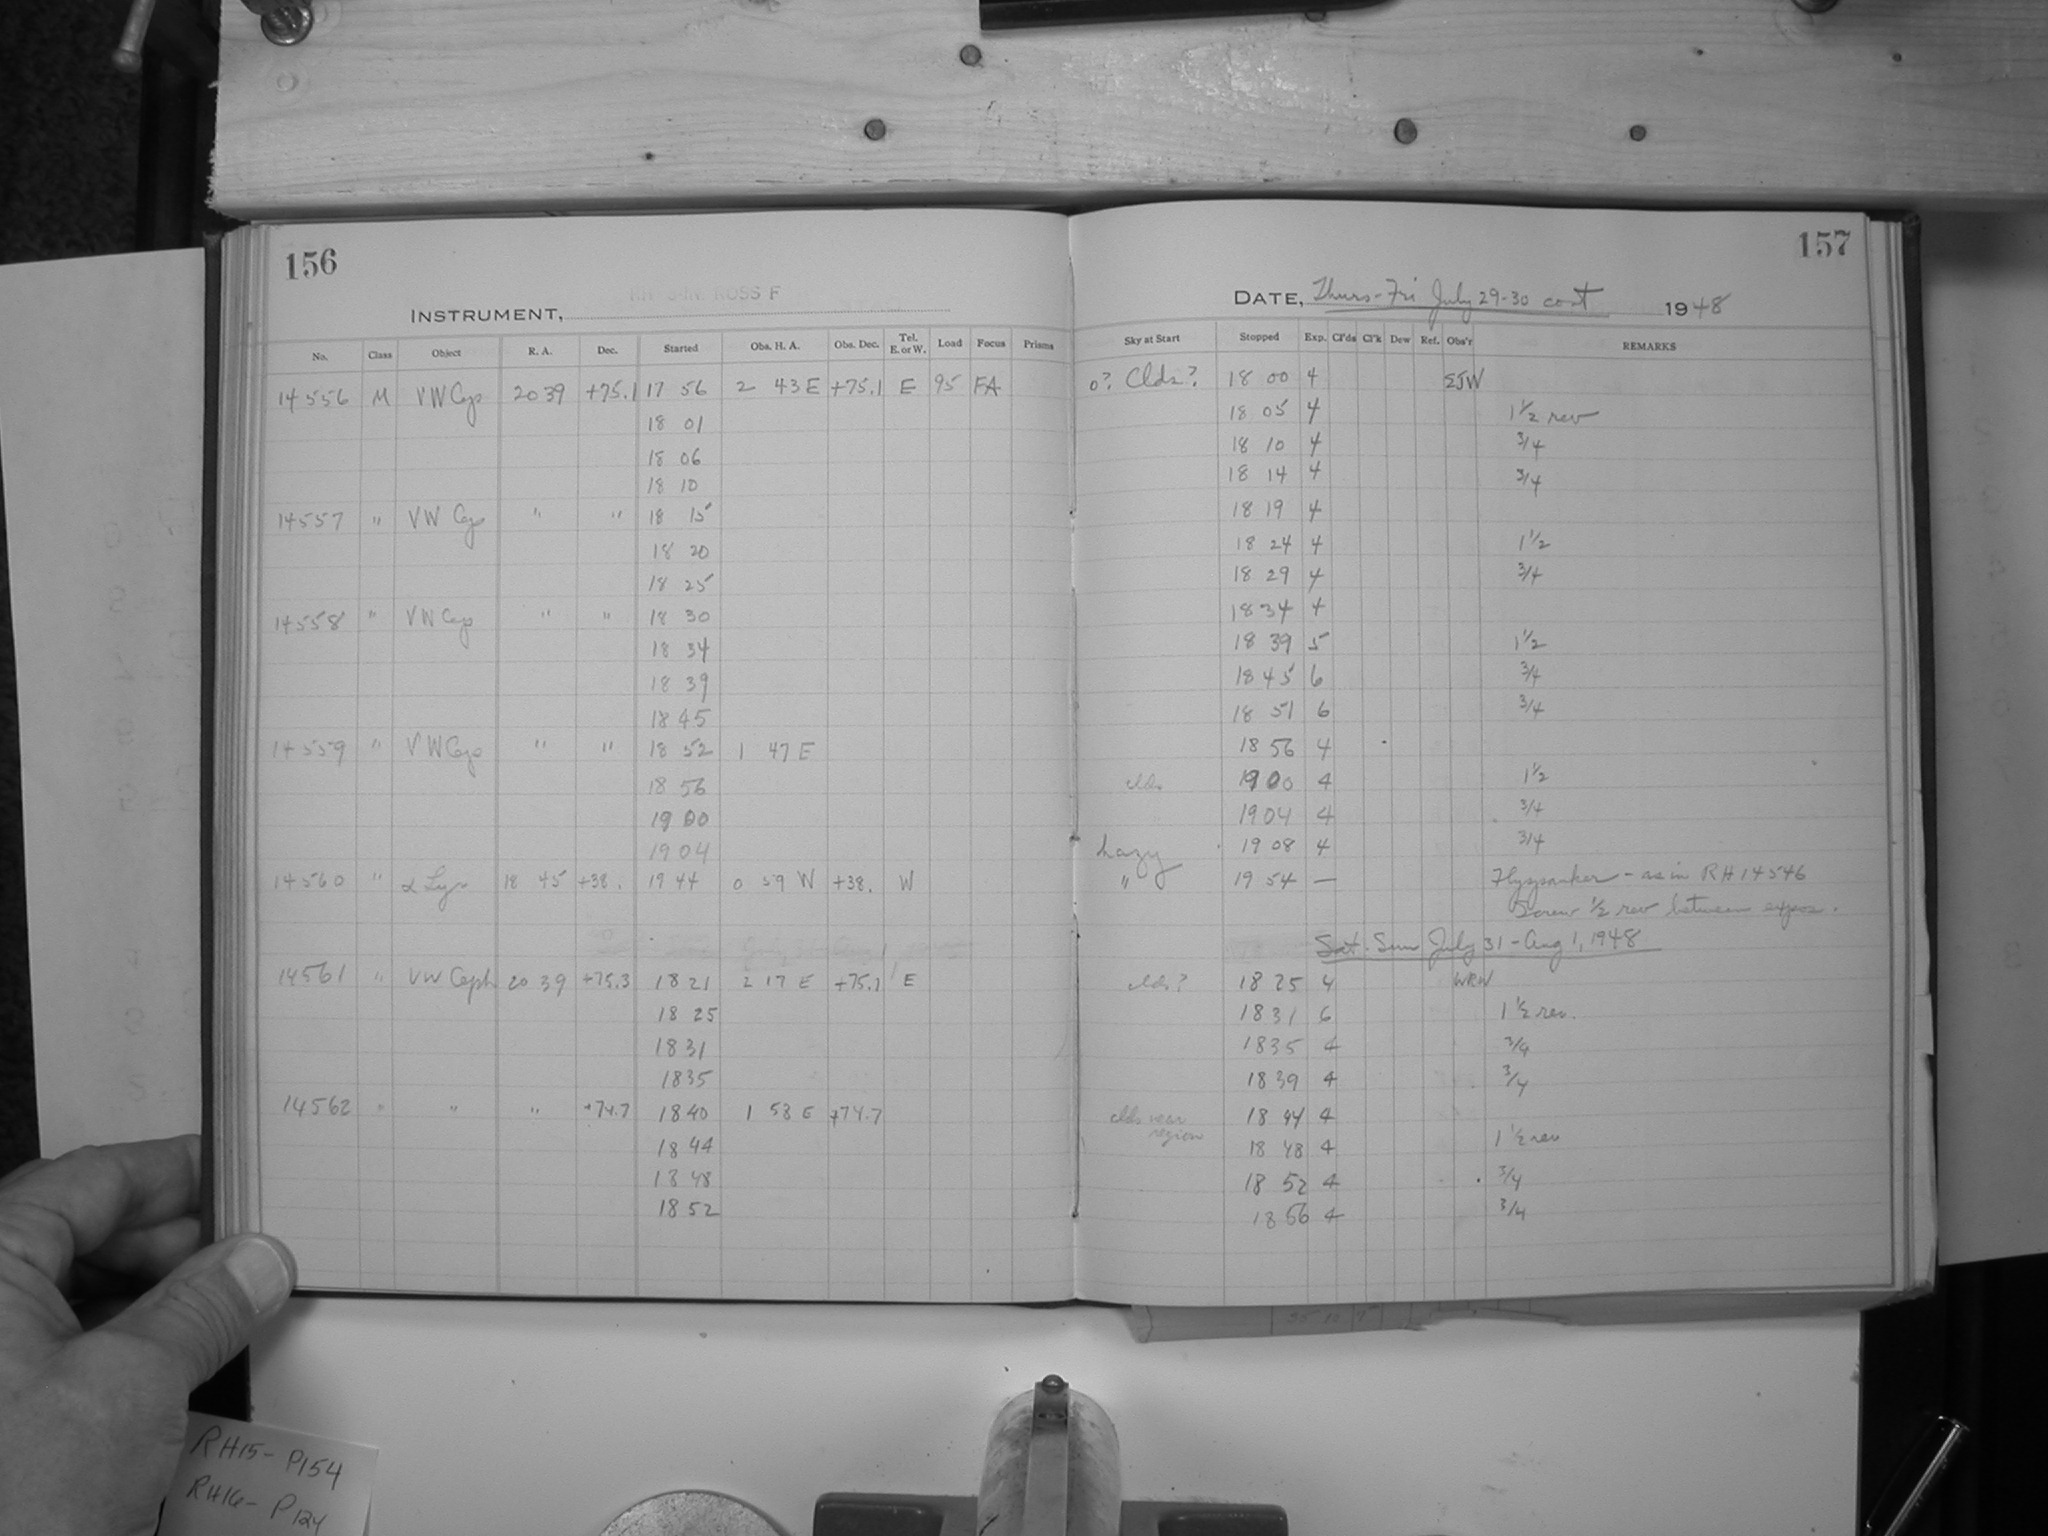 156
157
ROSS F
INSTRUMENT,
DATE, Thurs-Fri July 29-30 cont 1948
No. Class Object R. A. Dec. Started Obs. H. A. Obs. Dec. Tel. E. or W. Load Focus Prisms Sky at Start Stopped Exp. Cl'ds Cl'k Dew Ref. Obs'r REMARKS
14556 M VW Cep 20 39 +75.1 17 56 2 43 E +75.1 E 95 FA o? Clds? 18 00 4 ΣJW
18 01 18 05 4 1 1/2 rev
18 06 18 10 4 3/4
18 10 18 14 4 3/4
14557 " VW Cep " " 18 15 18 19 4
18 20 18 24 4 1 1/2
18 25 18 29 4 3/4
14558 " VW Cep " " 18 30 18 34 4
18 34 18 39 5 1 1/2
18 39 18 45 6 3/4
18 45 18 51 6 3/4
14559 " VW Cep " " 18 52 1 47 E 18 56 4
18 56 clds 19 00 4 1 1/2
19 00 19 04 4 3/4
19 04 hazy 19 08 4 3/4
14560 " α Lyr 18 45 +38. 19 44 0 59 W +38. W " 19 54 — Flyspanker - as in RH 14546
Screw 1/2 rev between expos.
Sat-Sun July 31 - Aug 1, 1948
14561 " VW Ceph 20 39 +75.3 18 21 2 17 E +75.1 E clds? 18 25 4 WRW
18 25 18 31 6 1 1/2 rev.
18 31 18 35 4 3/4
18 35 18 39 4 3/4
14562 " " " +74.7 18 40 1 58 E +74.7 clds near region 18 44 4
18 44 18 48 4 1 1/2 rev
18 48 18 52 4 3/4
18 52 18 56 4 3/4
RH15- P154
RH16- P124